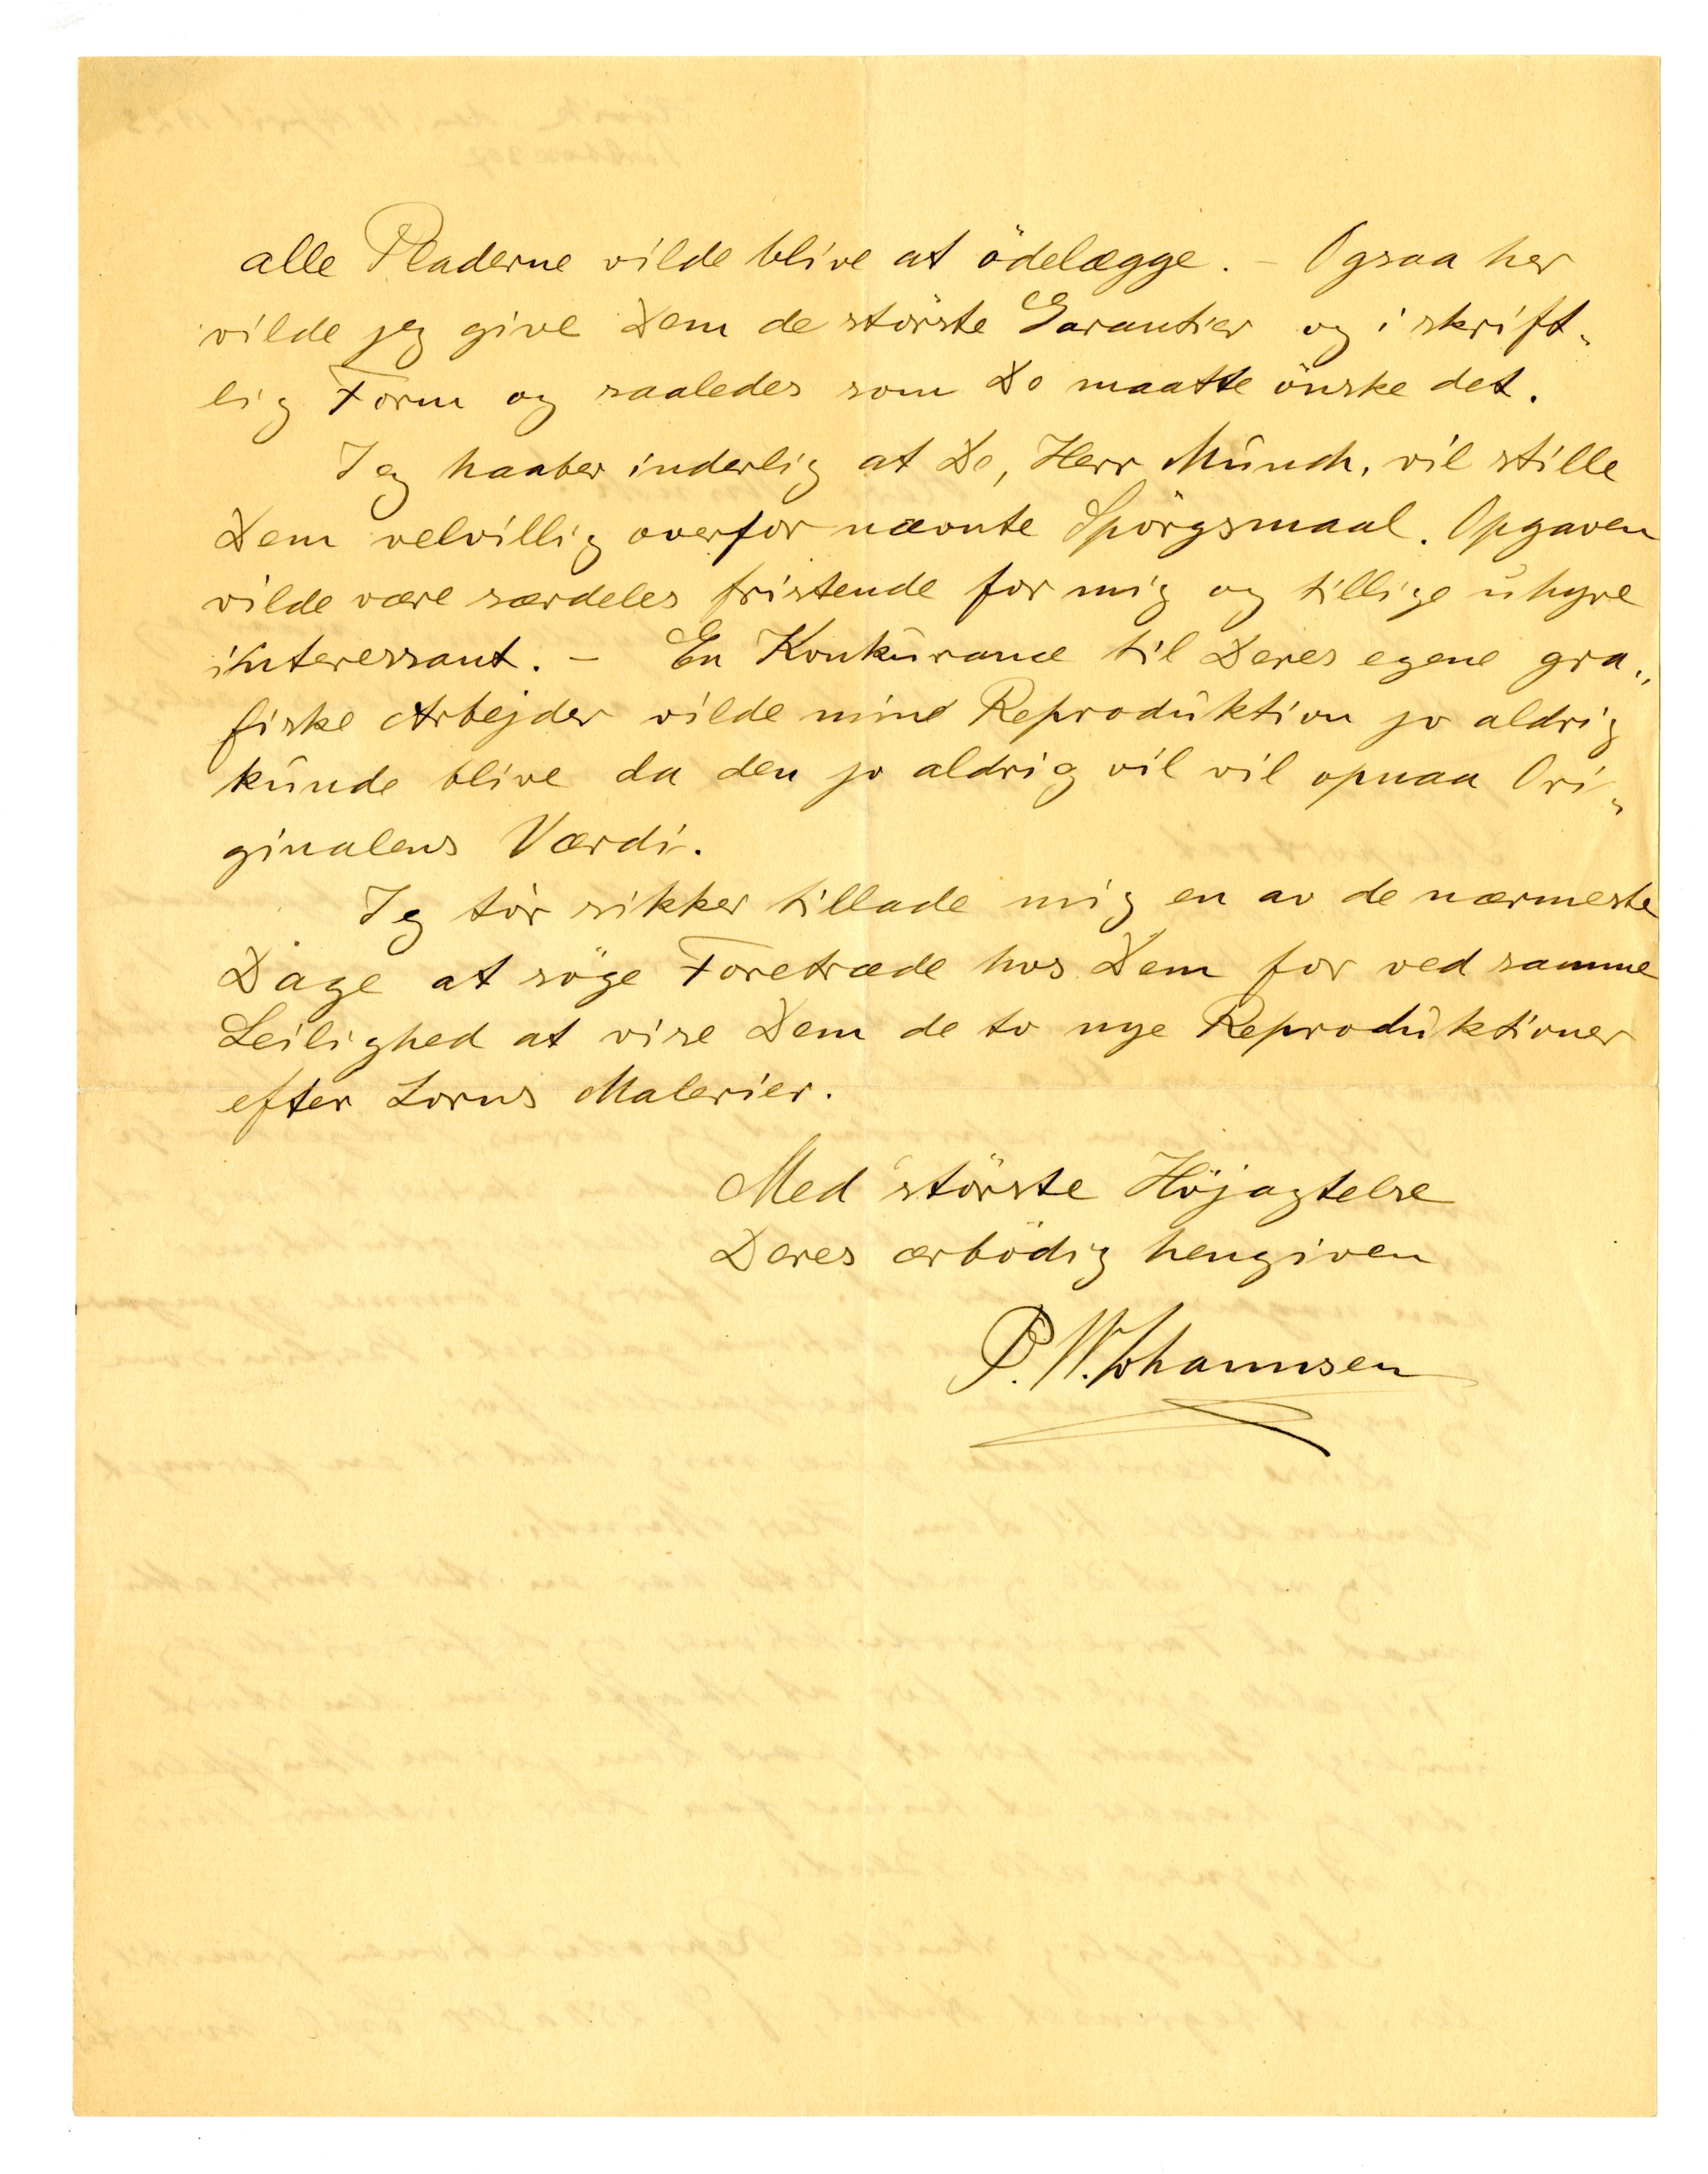 alle Pladerne vilde blive at ödelægge. – Ogsaa her
vilde jeg give Dem de störste Garantier og i skrift-
lig Form og saaledes som De maatte önske det.
Jeg haaber inderlig at De, Herr Munch, vil stille
Dem velvillig overfor nævnte Spörgsmaal. Opgaven
vilde være særdeles fristende for mig og tillige uhyre
interessant. – En Konkurance til Deres egene gra-
fiske Arbejder vilde mine Reproduktion jo aldrig
kunde blive da den jo aldrig vil vil opnaa Ori-
ginalens Værdi.
Jeg tör sikker tillade mig en av de nærmeste
Dage at söge Foretræde hos Dem for ved samme
Leilighed at vise Dem de to nye Reproduktioner
efter Zorns Malerier.
Med störste Höjagtelse
Deres ærbödig hengiven
P. W. Johannsen